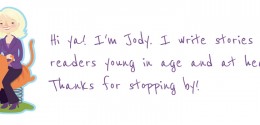 Hi ya! I'm Jody. I write stories
readers young in age and at
Thanks for stopping by!